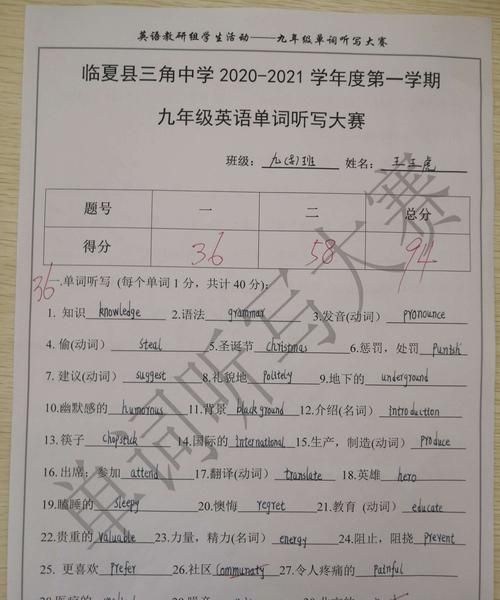 英语教研组学生活动——九年级单词听写大赛
临夏县三角中学 2020-2021 学年度第一学期
九年级英语单词听写大赛
班级： 九 班 姓名： 王 虎
题号 一 二 总分
得分 36 58 94
36
一.单词听写 (每个单词 1 分，共计 40 分)：
1. 知识 knowledge 2.语法 grammar 3.发音(动词) pronounce
4. 偷(动词) steal 5.圣诞节 christmas 6.惩罚，处罚 punish
7. 建议(动词) suggest 8.礼貌地 politely 9.地下的 underground
10.幽默感的 humorous 11.背景 blackground 12.介绍(名词) introduction
13.筷子 chopstick 14.国际的 international 15.生产，制造(动词) produce
16.出席；参加 attend 17.翻译(动词) translate 18.英雄 hero
19.瞌睡的 sleepy 20.懊悔 regret 21.教育 (动词) educate
22.贵重的 valuable 23.力量，精力(名词) energy 24.阻止，阻挠 prevent
25. 更喜欢 prefer 26.社区 communaty 27.令人疼痛的 painful
单词听写大赛